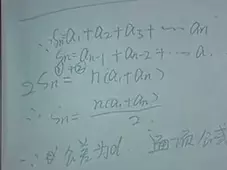 ∵ Sn=a₁+a₂+a₃+⋯an
Sn=an-1+an-2+⋯a.
①+②
2Sn= n(a₁+an)
∴ Sn= n(a₁+an)/2
∵ 公差为d 通项公式